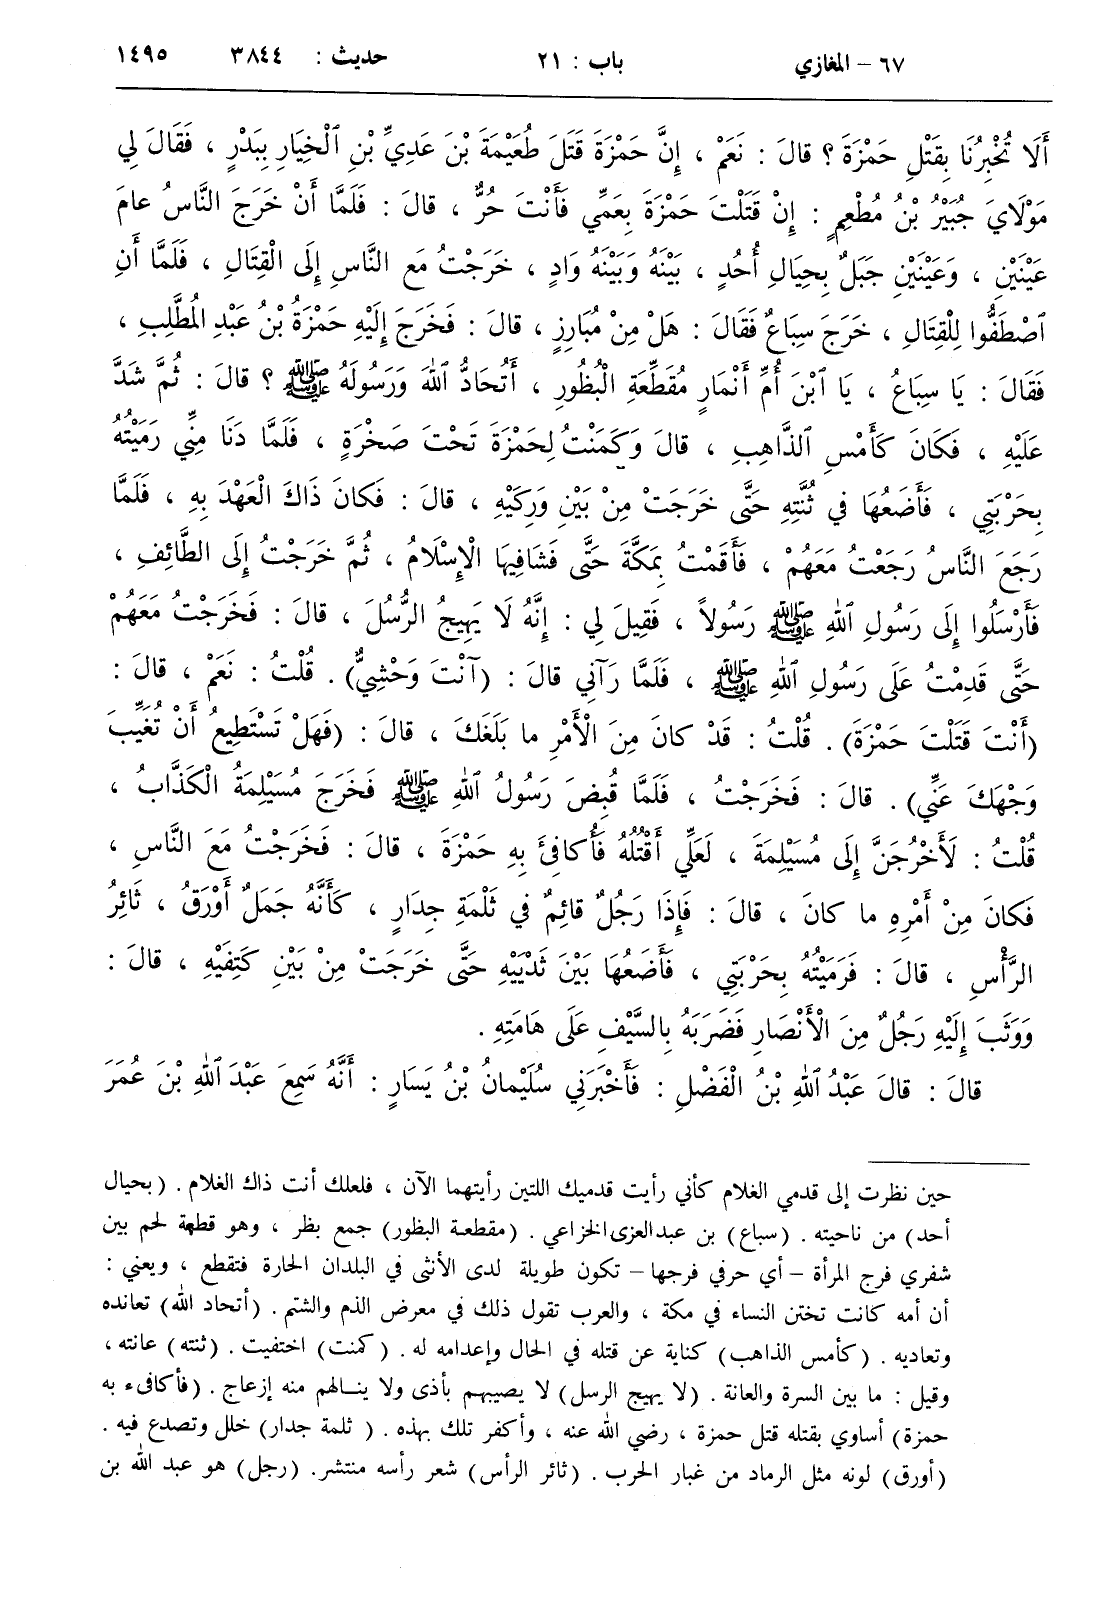 ٦٧ – المغازي باب : ٢١ حديث : ٣٨٤٤ ١٤٩٥
أَلَا تُخْبِرُنَا بِقَتْلِ حَمْزَةَ ؟ قالَ : نَعَمْ ، إِنَّ حَمْزَةَ قَتَلَ طُعَيْمَةَ بْنَ عَدِيِّ بْنِ ٱلْخِيَارِ بِبَدْرٍ ، فَقَالَ لِي
مَوْلَايَ جُبَيْرُ بْنُ مُطْعِمٍ : إِنْ قَتَلْتَ حَمْزَةَ بِعَمِّي فَأَنْتَ حُرٌّ ، قالَ : فَلَمَّا أَنْ خَرَجَ النَّاسُ عامَ
عَيْنَيْنِ ، وَعَيْنَيْنِ جَبَلٌ بِحِيَالِ أُحُدٍ ، بَيْنَهُ وَبَيْنَهُ وَادٍ ، خَرَجْتُ مَعَ النَّاسِ إِلَى الْقِتَالِ ، فَلَمَّا أَنِ
ٱصْطَفُّوا لِلْقِتَالِ ، خَرَجَ سِبَاعٌ فَقَالَ : هَلْ مِنْ مُبَارِزٍ ، قالَ : فَخَرَجَ إِلَيْهِ حَمْزَةُ بْنُ عَبْدِ المُطَّلِبِ ،
فَقَالَ : يَا سِبَاعُ ، يَا ٱبْنَ أُمِّ أَنْمَارٍ مُقَطِّعَةِ الْبُظُورِ ، أَتُحَادُّ ٱللهَ وَرَسُولَهُ ﷺ ؟ قالَ : ثُمَّ شَدَّ
عَلَيْهِ ، فَكَانَ كَأَمْسِ ٱلذَّاهِبِ ، قالَ وَكَمَنْتُ لِحَمْزَةَ تَحْتَ صَخْرَةٍ ، فَلَمَّا دَنَا مِنِّي رَمَيْتُهُ
بِحَرْبَتِي ، فَأَضَعُهَا في ثُنَّتِهِ حَتَّى خَرَجَتْ مِنْ بَيْنِ وَرِكَيْهِ ، قالَ : فَكانَ ذَاكَ الْعَهْدَ بِهِ ، فَلَمَّا
رَجَعَ النَّاسُ رَجَعْتُ مَعَهُمْ ، فَأَقَمْتُ بِمَكَّةَ حَتَّى فَشَافِيهَا الْإِسْلَامُ ، ثُمَّ خَرَجْتُ إِلَى الطَّائِفِ ،
فَأَرْسَلُوا إِلَى رَسُولِ ٱللهِ ﷺ رَسُولاً ، فَقِيلَ لِي : إِنَّهُ لَا يَهِيجُ الرُّسُلَ ، قالَ : فَخَرَجْتُ مَعَهُمْ
حَتَّى قَدِمْتُ عَلَى رَسُولِ ٱللهِ ﷺ ، فَلَمَّا رَآنِي قالَ : (آنْتَ وَحْشِيٌّ) . قُلْتُ : نَعَمْ ، قالَ :
(أَنْتَ قَتَلْتَ حَمْزَةَ) . قُلْتُ : قَدْ كانَ مِنَ الْأَمْرِ ما بَلَغَكَ ، قالَ : (فَهَلْ تَسْتَطِيعُ أَنْ تُغَيِّبَ
وَجْهَكَ عَنِّي) . قالَ : فَخَرَجْتُ ، فَلَمَّا قُبِضَ رَسُولُ ٱللهِ ﷺ فَخَرَجَ مُسَيْلِمَةُ الْكَذَّابُ ،
قُلْتُ : لَأَخْرُجَنَّ إِلَى مُسَيْلِمَةَ ، لَعَلِّي أَقْتُلُهُ فَأُكافِئَ بِهِ حَمْزَةَ ، قالَ : فَخَرَجْتُ مَعَ النَّاسِ ،
فَكانَ مِنْ أَمْرِهِ ما كانَ ، قالَ : فَإِذَا رَجُلٌ قائِمٌ في ثَلْمَةِ جِدَارٍ ، كَأَنَّهُ جَمَلٌ أَوْرَقُ ، ثَائِرُ
الرَّأْسِ ، قالَ : فَرَمَيْتُهُ بِحَرْبَتِي ، فَأَضَعُهَا بَيْنَ ثَدْيَيْهِ حَتَّى خَرَجَتْ مِنْ بَيْنِ كَتِفَيْهِ ، قالَ :
وَوَثَبَ إِلَيْهِ رَجُلٌ مِنَ الْأَنْصَارِ فَضَرَبَهُ بِالسَّيْفِ عَلَى هَامَتِهِ .
قالَ : قالَ عَبْدُ ٱللهِ بْنُ الْفَضْلِ : فَأَخْبَرَنِي سُلَيْمانُ بْنُ يَسَارٍ : أَنَّهُ سَمِعَ عَبْدَ ٱللهِ بْنَ عُمَرَ
حين نظرت إلى قدمي الغلام كأني رأيت قدميك اللتين رأيتهما الآن ، فلعلك أنت ذاك الغلام . (بحيال
أحد) من ناحيته . (سباع) بن عبدالعزى الخزاعي . (مقطعة البظور) جمع بظر ، وهو قطعة لحم بين
شفري فرج المرأة – أي حرفي فرجها – تكون طويلة لدى الأنثى في البلدان الحارة فتقطع ، ويعني :
أن أمه كانت تختن النساء في مكة ، والعرب تقول ذلك في معرض الذم والشتم . (أتحاد الله) تعانده
وتعاديه . (كأمس الذاهب) كناية عن قتله في الحال وإعدامه له . (كمنت) اختفيت . (ثنته) عانته ،
وقيل : ما بين السرة والعانة . (لا يهيج الرسل) لا يصيبهم بأذى ولا ينالهم منه إزعاج . (فأكافىء به
حمزة) أساوي بقتله قتل حمزة ، رضي الله عنه ، وأكفر تلك بهذه . (ثلمة جدار) خلل وتصدع فيه .
(أورق) لونه مثل الرماد من غبار الحرب . (ثائر الرأس) شعر رأسه منتشر. (رجل) هو عبد الله بن